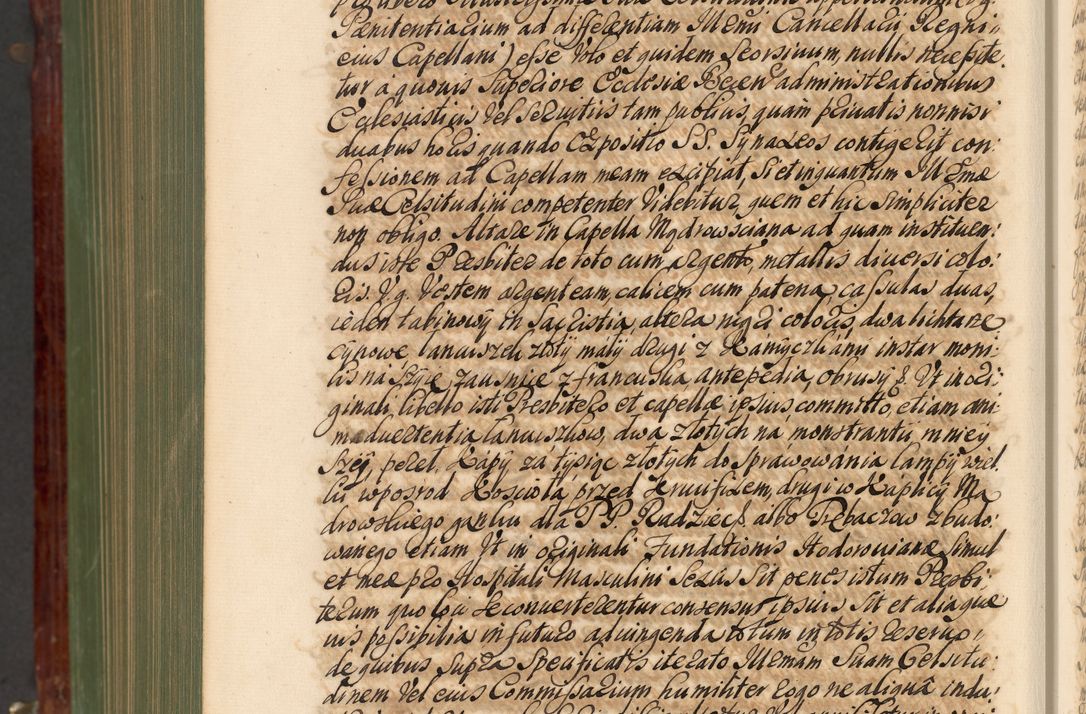 Pænitentiarium ad differentiam Illmi Cancellarii Regni,
eius Capellani) esse volo et quidem seorsivum, nullis recepite
tur á quovis Superiore Ecclesiæ Recen administrationibus
Ecclesiasticis vel servitiis tam publicis, quam privatis nonnisi
duabus horis quando Expositio S S. Synaxeos contigerit con:
fessionem ad Capellam meam excipiat, Si et inquantum Ill Emæ
Suæ Celsitudini competenter videbitur, quem et hic simpliciter
non obligo. Altare in Capella Mądrowsciana ad quam instituen:
dus iste Presbiter de toto cum argento, metallis diversi colo:
ris. V. g. Vestem argenteam, calicem cum patena, casulas duas,
ieden tabinowy in Sacristia, altera nigri coloris, dwa lichtarze
cynowe, lancuszek złoty mały drugi z Kamyczkami instar moni:
lis na szyie, zausnice z francuska antepedia, obrusy &. Ut in ori:
ginali libello isti Presbitero et capellæ ipsius committo, etiam ani
madvertentia lancuszkow, dwa złotych na monstrantii mniey
szey, pereł. Kapy za tysiąc złotych do sprawowania lampy wiel
ki wposrod Koscioła przed Krucifixem, drugi w Kaplicy Mą
drowskiego gankiu dla P P. Radziec &. albo Trębaczow zbudo:
wanego etiam Ut in originali Fundationis Hodorovianæ Simul
et meæ pro Hospitali Masculini sexus Sit penes istum Presbi,
terum quo loci se converterentur consensu ipsius Sit et alia quæ
vis possibilia in futuro adiungenda totum in totis reservo,
de quibus Supra Specificatis iterato Illmam Suam Celsitu:
dinem vel eius Commissarium humiliter rogo ne aliquâ indu: